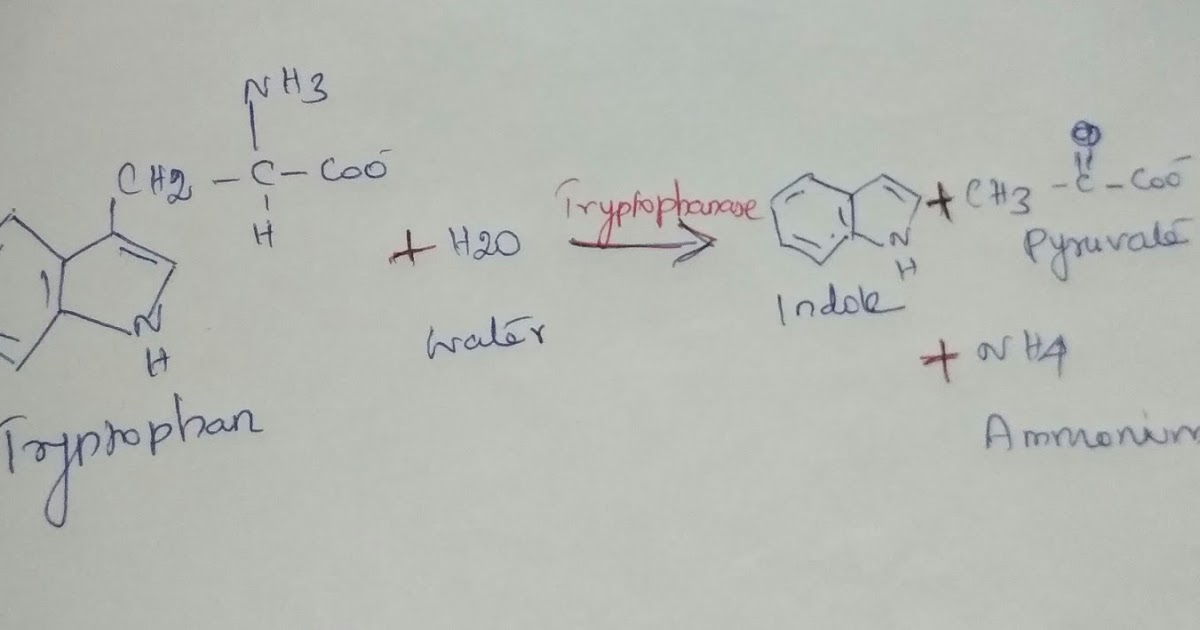 NH3
CH2 – C – COO⁻
H
N
H
Tryptophan
+ H2O
water
Tryptophanase
N
H
Indole
+ CH3 – C – COO⁻
O
Pyruvate
+ NH4
Ammonium